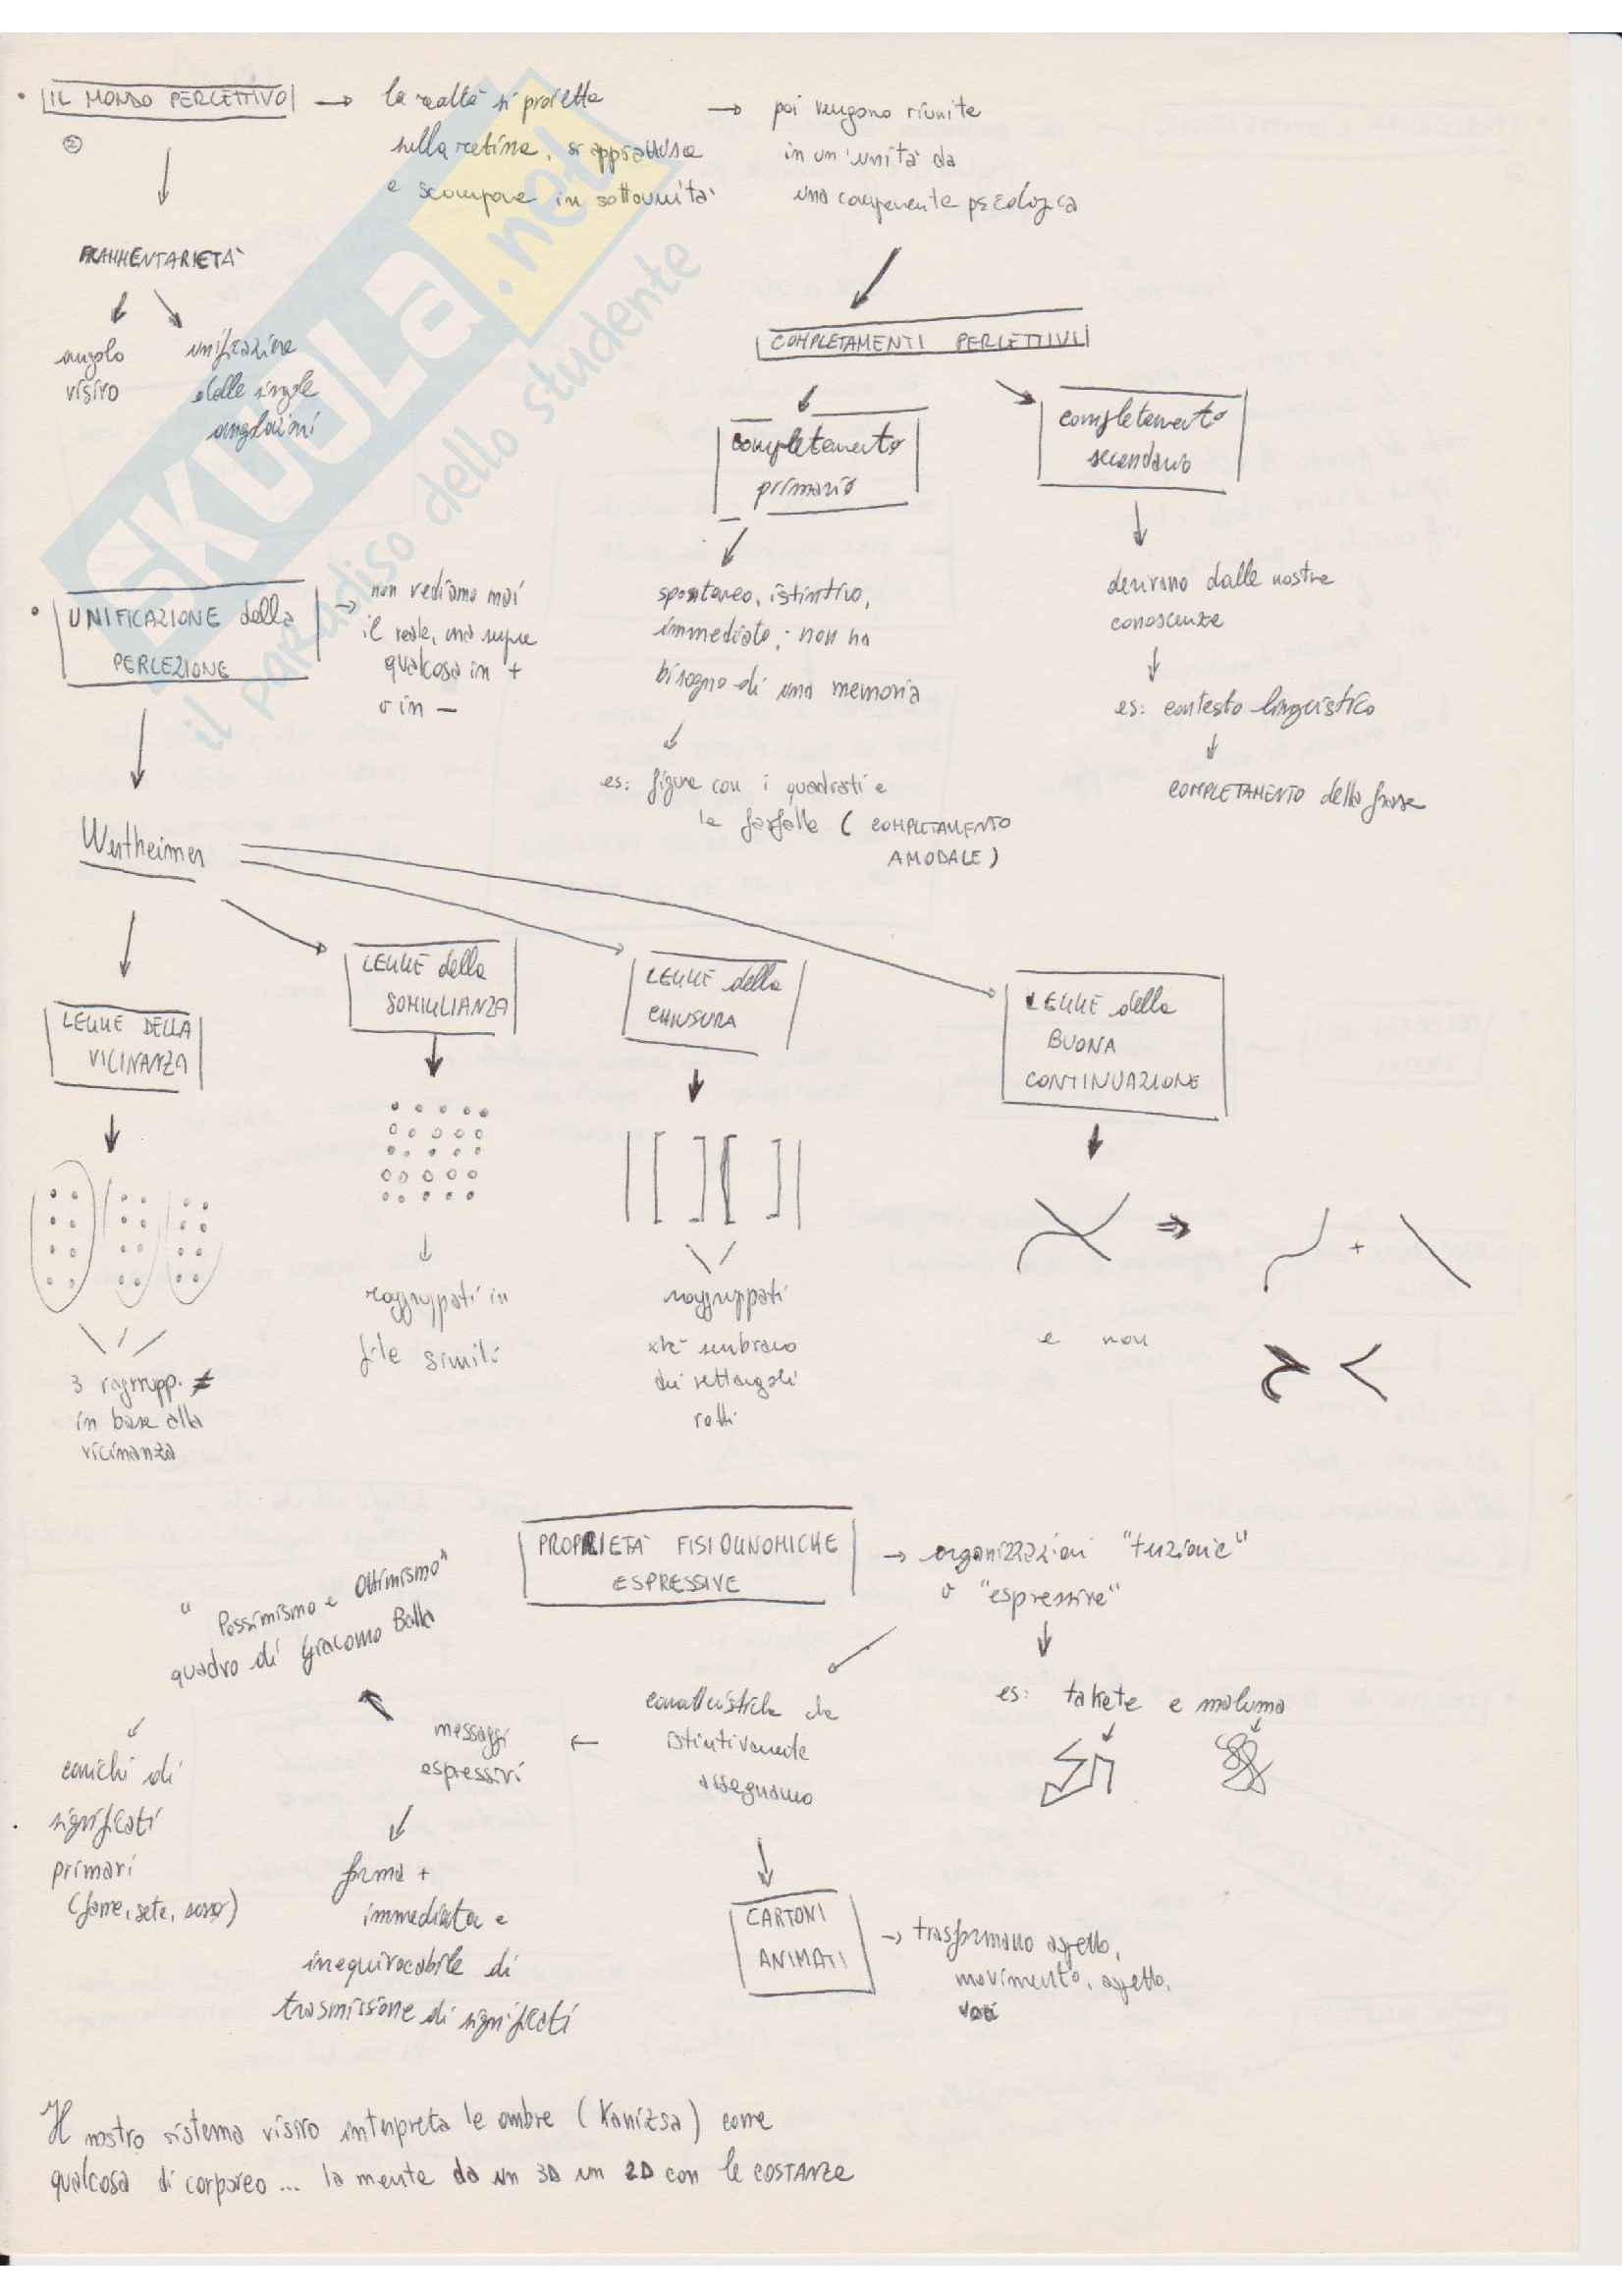 IL MONDO PERCETTIVO
②
la realtà si proietta
sulla retina, si appiattisce
e scompone in sottounità
poi vengono riunite
in un'unità da
una componente psicologica
FRAMMENTARIETÀ
angolo
visivo
unificazione
delle singole
angolazioni
COMPLETAMENTI PERCETTIVI
completamento
primario
completamento
secondario
spontaneo, istintivo,
immediato; non ha
bisogno di una memoria
es: figure con i quadrati e
le farfalle ( COMPLETAMENTO
AMODALE )
derivano dalle nostre
conoscenze
es: contesto linguistico
COMPLETAMENTO della frase
UNIFICAZIONE della
PERCEZIONE
non vediamo mai
il reale, ma sempre
qualcosa in +
o in –
Wertheimer
LEGGE DELLA
VICINANZA
LEGGE della
SOMIGLIANZA
LEGGE della
CHIUSURA
LEGGE della
BUONA
CONTINUAZIONE
3 raggrupp. ≠
in base alla
vicinanza
raggruppati in
file simili
raggruppati
xkè sembrano
dei rettangoli
rotti
+
e non
PROPRIETÀ FISIOGNOMICHE
ESPRESSIVE
organizzazioni "terziarie"
o "espressive"
es: takete e maluma
caratteristiche che
istintivamente
assegnamo
messaggi
espressivi
" Pessimismo e Ottimismo"
quadro di Giacomo Balla
carichi di
significati
primari
(fame, sete, sesso)
forma +
immediata e
inequivocabile di
trasmissione di significati
CARTONI
ANIMATI
trasformano aspetto,
movimento, aspetto,
voci
Il nostro sistema visivo interpreta le ombre (Kanizsa) come
qualcosa di corporeo... la mente da un 3D un 2D con le COSTANZE
SKUOLA.net
il paradiso dello studente